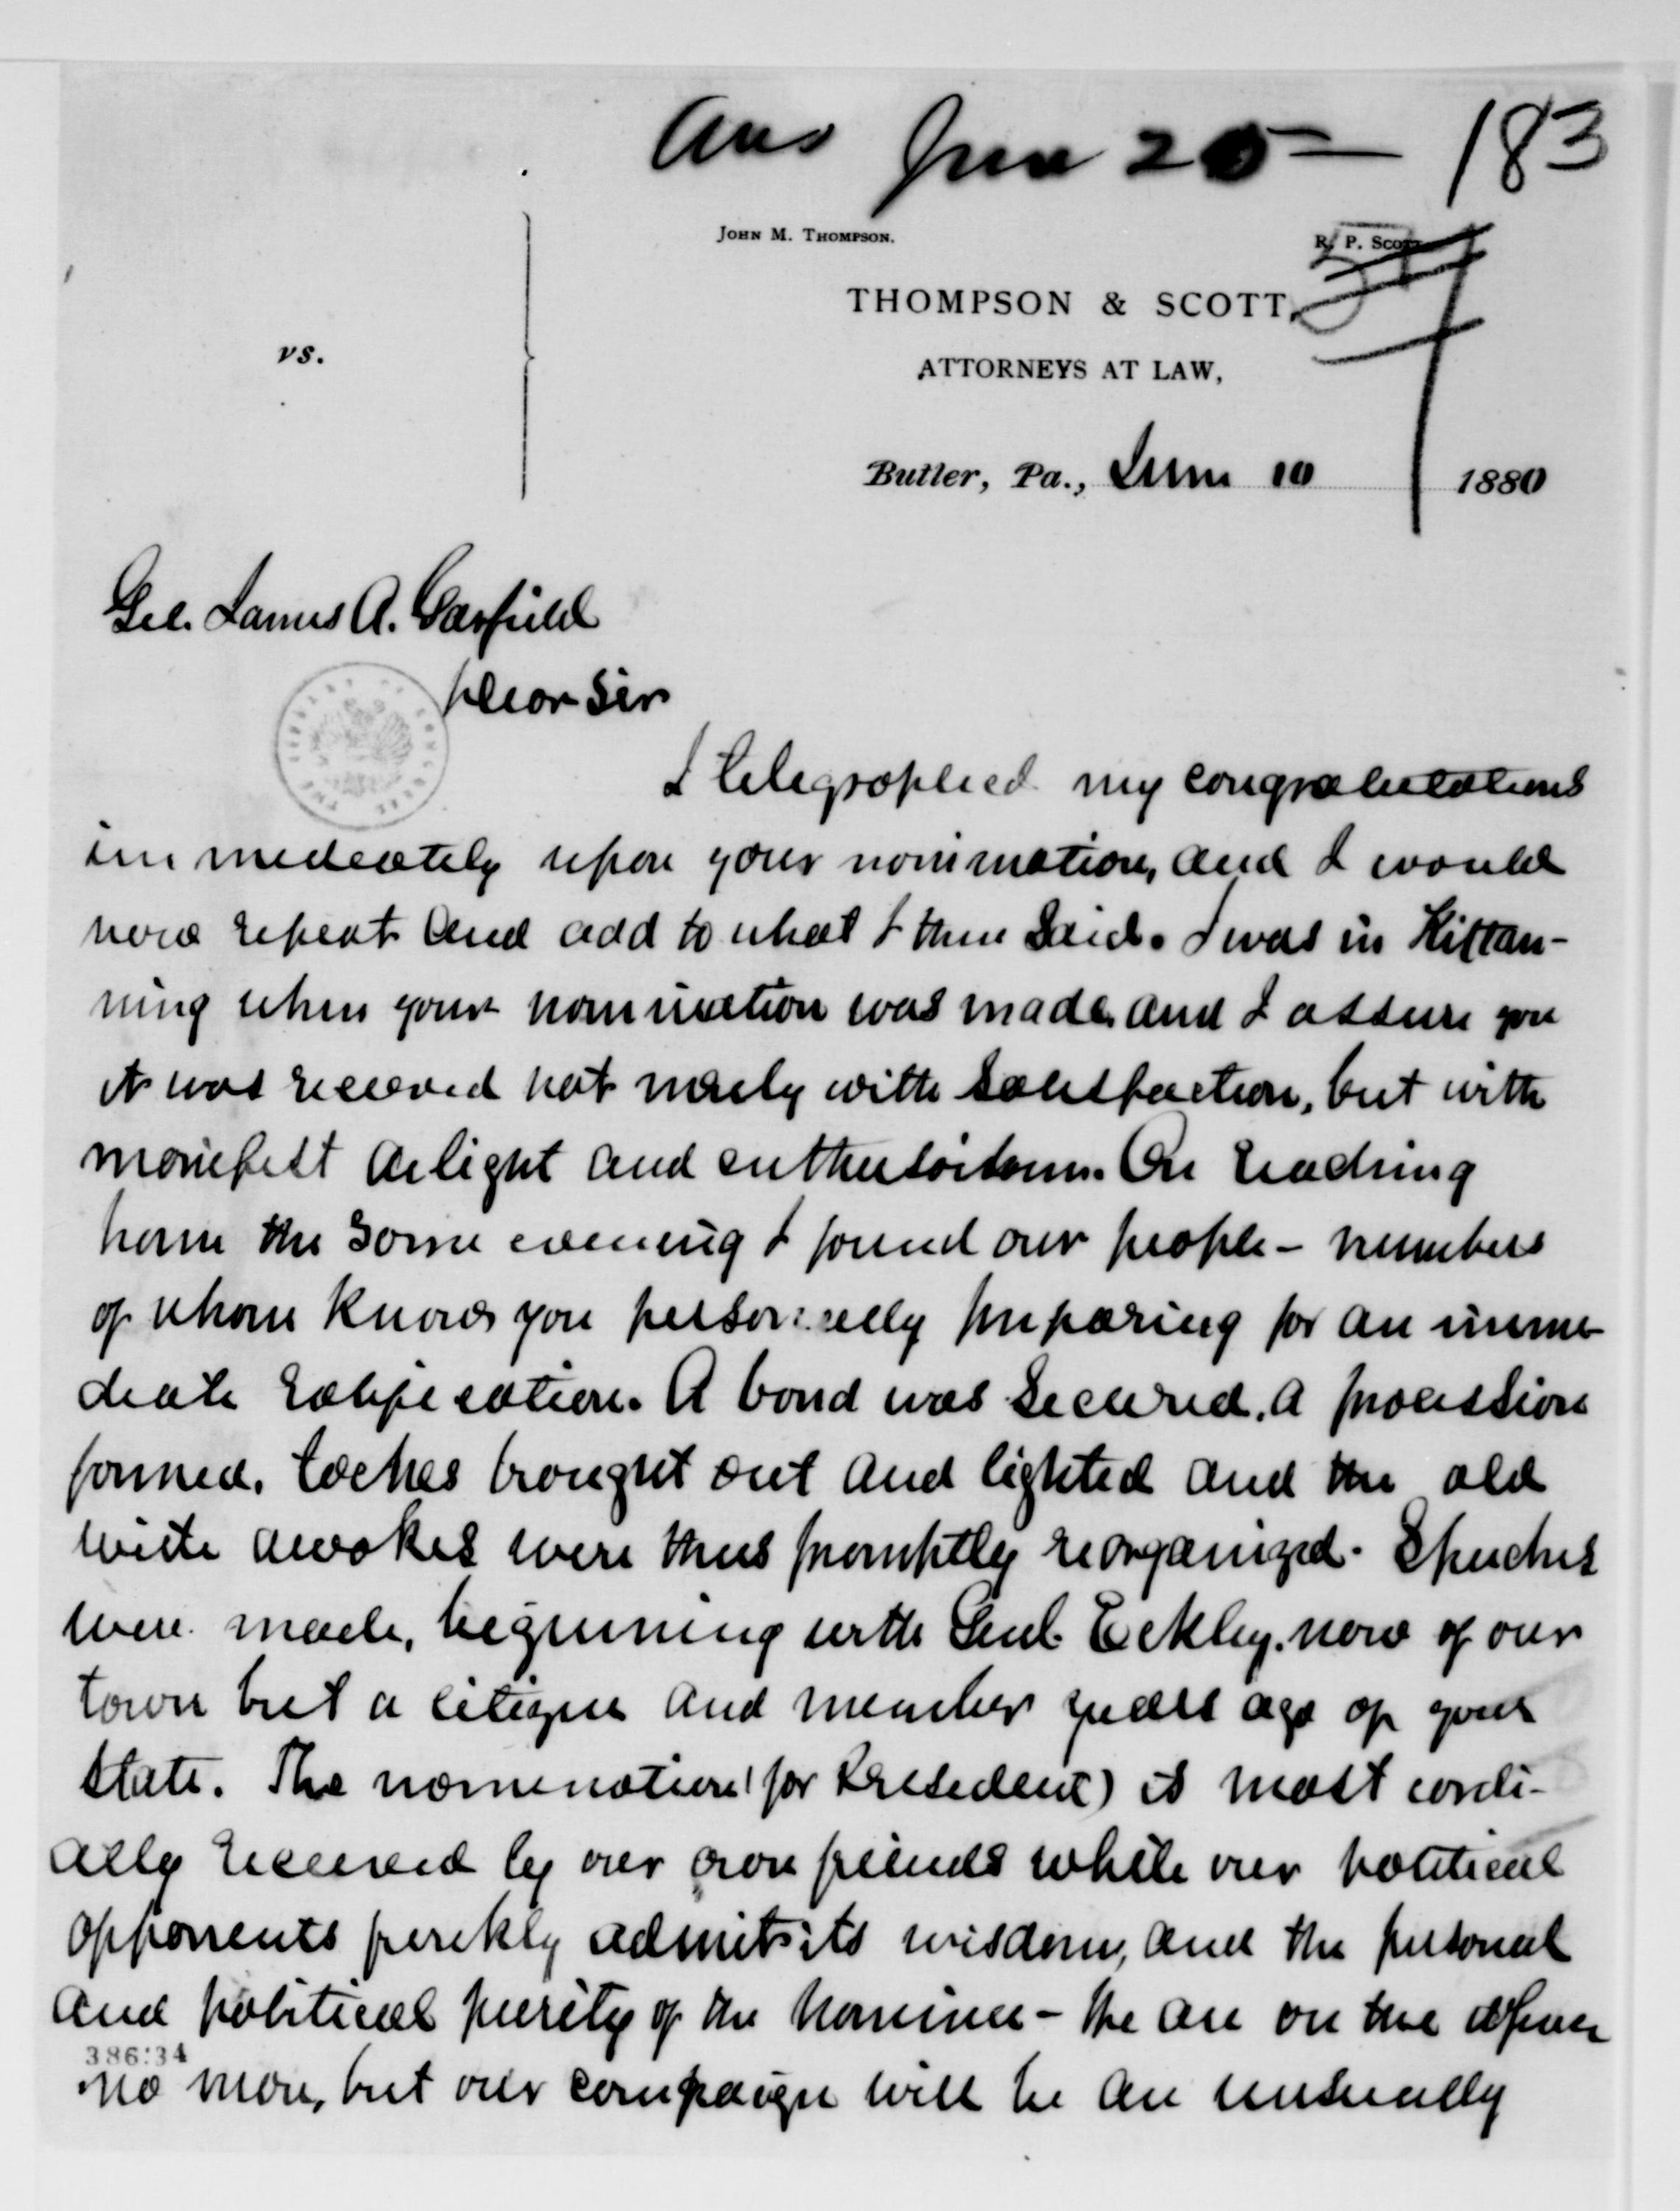 Ans June 25 — 183
JOHN M. THOMPSON.
R. P. SCOTT
THOMPSON & SCOTT,
ATTORNEYS AT LAW,
vs.
Butler, Pa., June 10 1880
Gel. James A. Garfield
Dear Sir
I telegraphed my congratulations
immediately upon your nomination, and I would
now repeat and add to what I then said. I was in Kittan-
ning when your nomination was made and I assure you
it was received not merely with satisfaction, but with
manifest delight and enthusiasm. On reaching
home the same evening I found our people - numbers
of whom know you personally preparing for an imme
diate ratification. A band was secured, a procession
formed, torches brought out and lighted and the old
wide awakes were thus promptly reorganized. Speeches
were made, beginning with Genl. Eckley, now of our
town but a citizen and member years ago of your
State. The nomination (for President) is most cordi-
ally received by our own friends while our political
opponents frankly admit its wisdom, and the personal
and political purity of the nominee - the are on the
386:34
no more, but our campaign will be an unusually